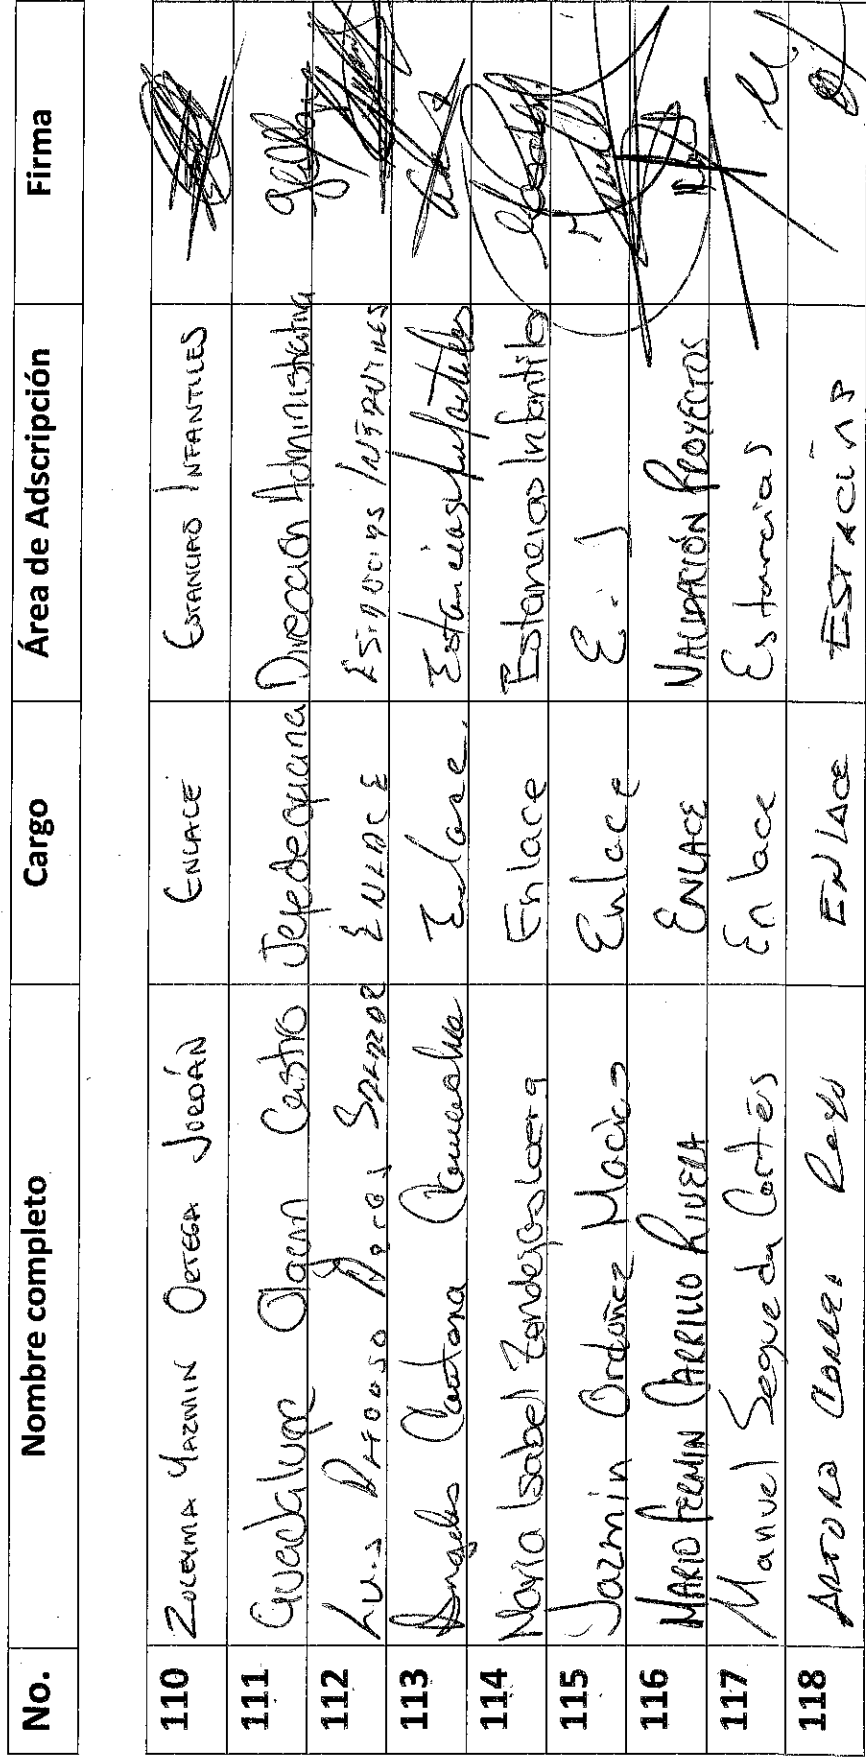 No. Nombre completo Cargo Área de Adscripción Firma
110 ZULEYMA YAZMIN ORTEGA JORDÁN ENLACE ESTANCIAS INFANTILES
111 Guadalupe Olguin Castro Jefe de oficina Dirección Administrativa
112 Luis ENLACE ESTANCIAS INFANTILES
113 Angeles Cantona Enlace Estancias Infantiles
114 Maria Isabel Enlace Estancias Infantiles
115 Jazmin Ordoñez Macias Enlace E. I
116 MARIO FERMIN CARRILLO RIVERA ENLACE VALIDACIÓN PROYECTOS
117 Manuel Segueda Cortés Enlace Estancias
118 ARTURO ENLACE